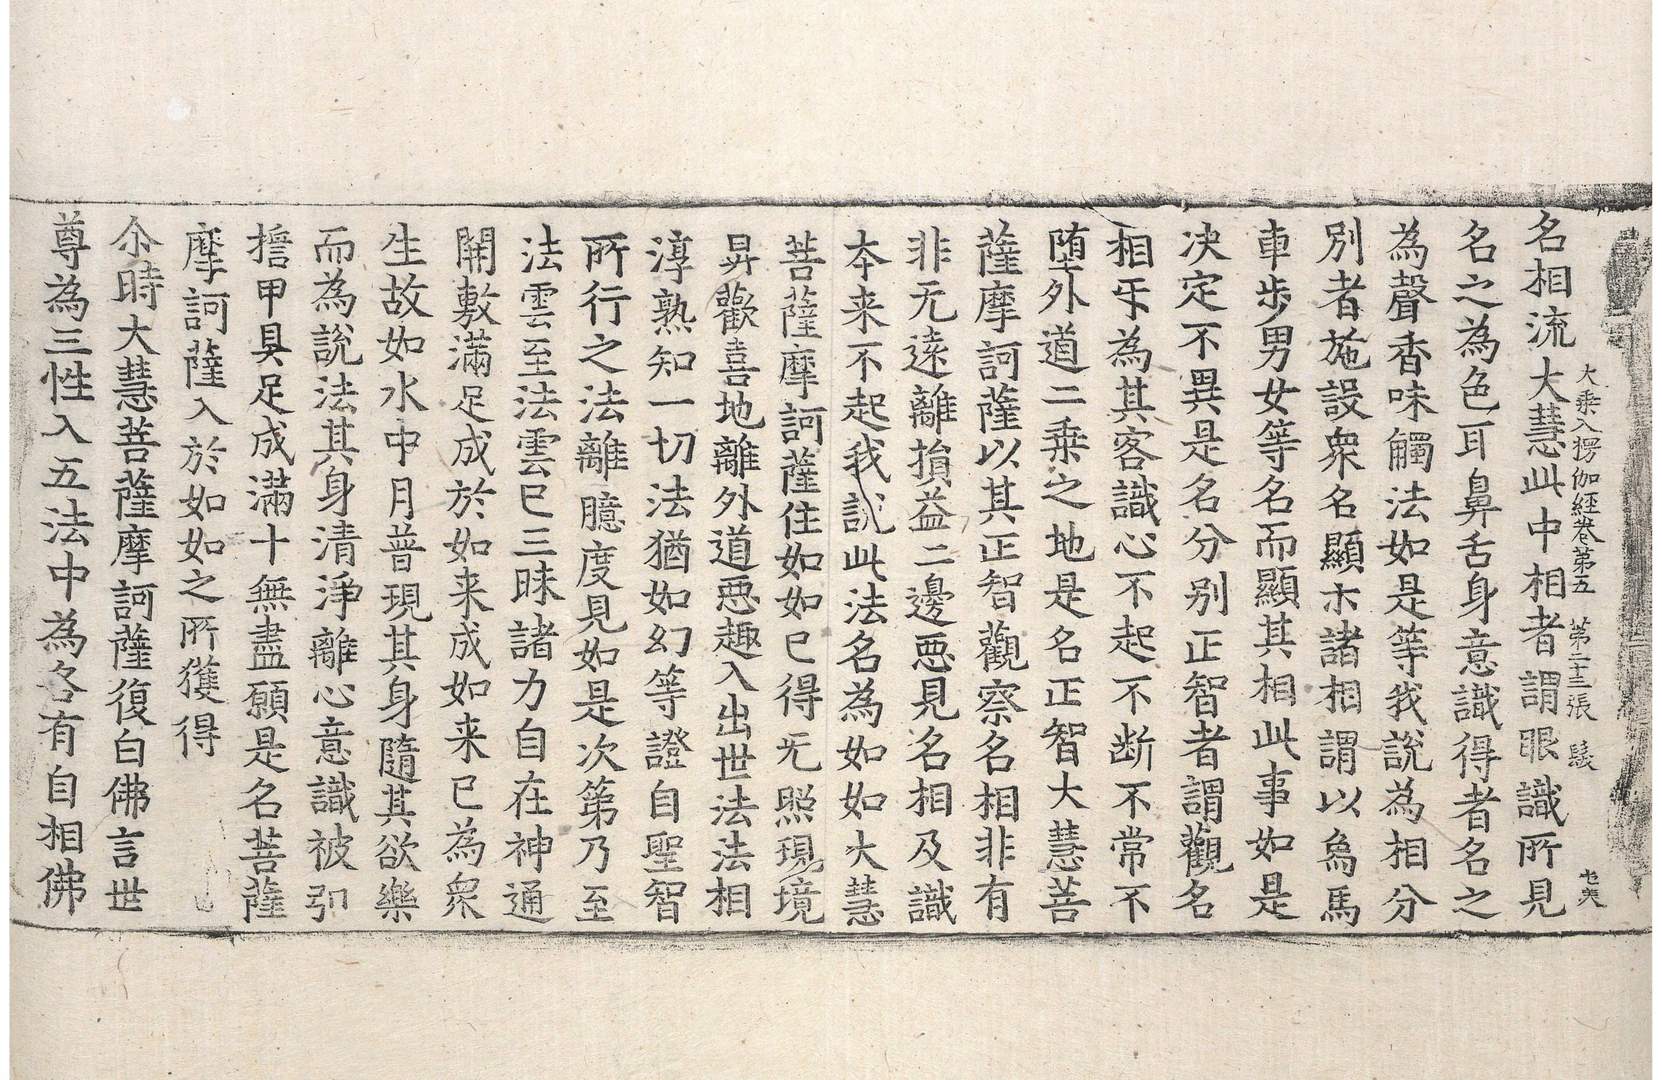 大乗入楞伽經卷第五 第二十三張 髮
名相流大慧此中相者謂眼識所見
名之為色耳鼻舌身意識得者名之
為聲香味觸法如是等我說為相分
別者施設衆名顯示諸相謂以爲馬
車步男女等名而顯其相此事如是
決定不異是名分別正智者謂觀名
相牙為其客識心不起不断不常不
墮外道二乗之地是名正智大慧菩
薩摩訶薩以其正智觀察名相非有
非无遠離損益二邊惡見名相及識
本来不起我說此法名為如如大慧
菩薩摩訶薩住如如已得无照現境
昇歡喜地離外道惡趣入出世法法相
淳熟知一切法猶如幻等證自聖智
所行之法離臆度見如是次第乃至
法雲至法雲已三昧諸力自在神通
開敷滿足成於如来成如来已為衆
生故如水中月普現其身隨其欲樂
而為說法其身清淨離心意識被弘
擔甲具足成滿十無盡願是名菩薩
摩訶薩入於如如之所獲得
尒時大慧菩薩摩訶薩復白佛言世
尊為三性入五法中為各有自相佛